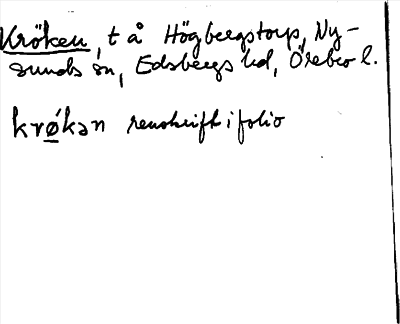 Kröken, t å Högbergstorp, Ny-
sunds sn, Edsbergs hd, Örebro l.
krǿkən renskrift i folio